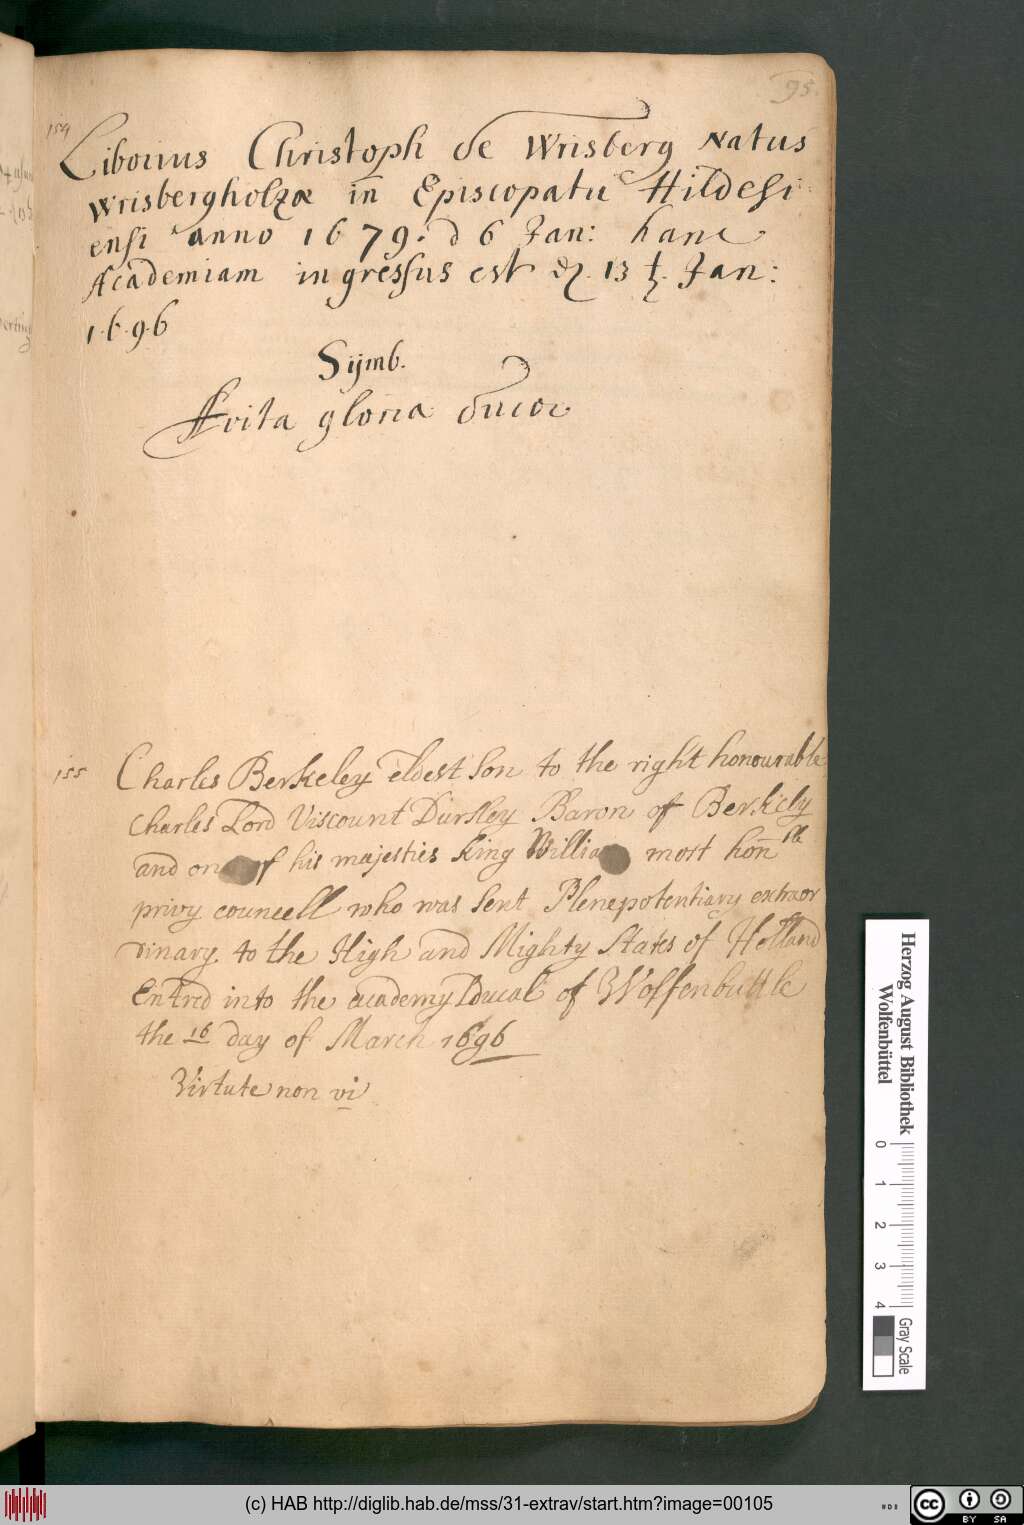 95.
154
Liborius Christoph de Wrisberg Natus
Wrisbergholzæ in Episcopatu Hildesi-
ensi anno 1679. d 6 Jan: hanc
Academiam ingressus est d. 13 t. Jan:
1696
Sÿmb.
Avita gloria ducor
155 Charles Berkeley eldest Son to the right honourable
Charles Lord Viscount Dursley Baron of Berkely
and on of his majesties King Willia most hon ble
privy councell who was sent Plenepotentiary extraor
dinary to the High and Mighty States of Holland
Entred into the academy Ducal of Wolfenbuttle
the 16 day of March 1696
Virtute non vi
Herzog August Bibliothek
Wolfenbüttel
0 1 2 3 4
Gray Scale
(c) HAB http://diglib.hab.de/mss/31-extrav/start.htm?image=00105
cc BY SA